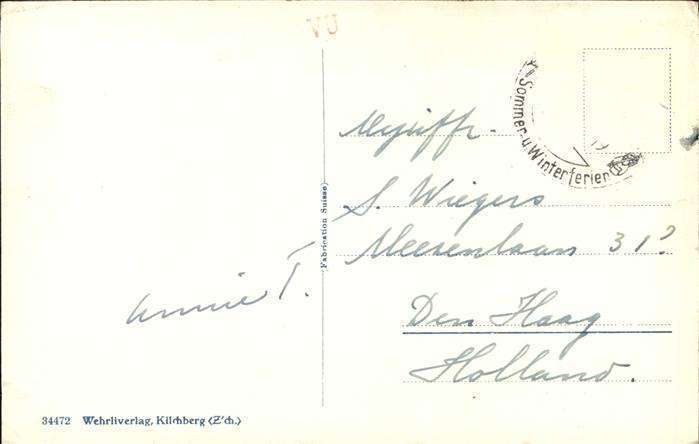 VU
Sommer- u Winterferien
Mejuffr.
S. Wiegers
Meezenlaan 31
Den Haag
Holland.
Annie T.
(Fabrication Suisse)
34472 Wehrliverlag, Kilchberg (Z'ch.)